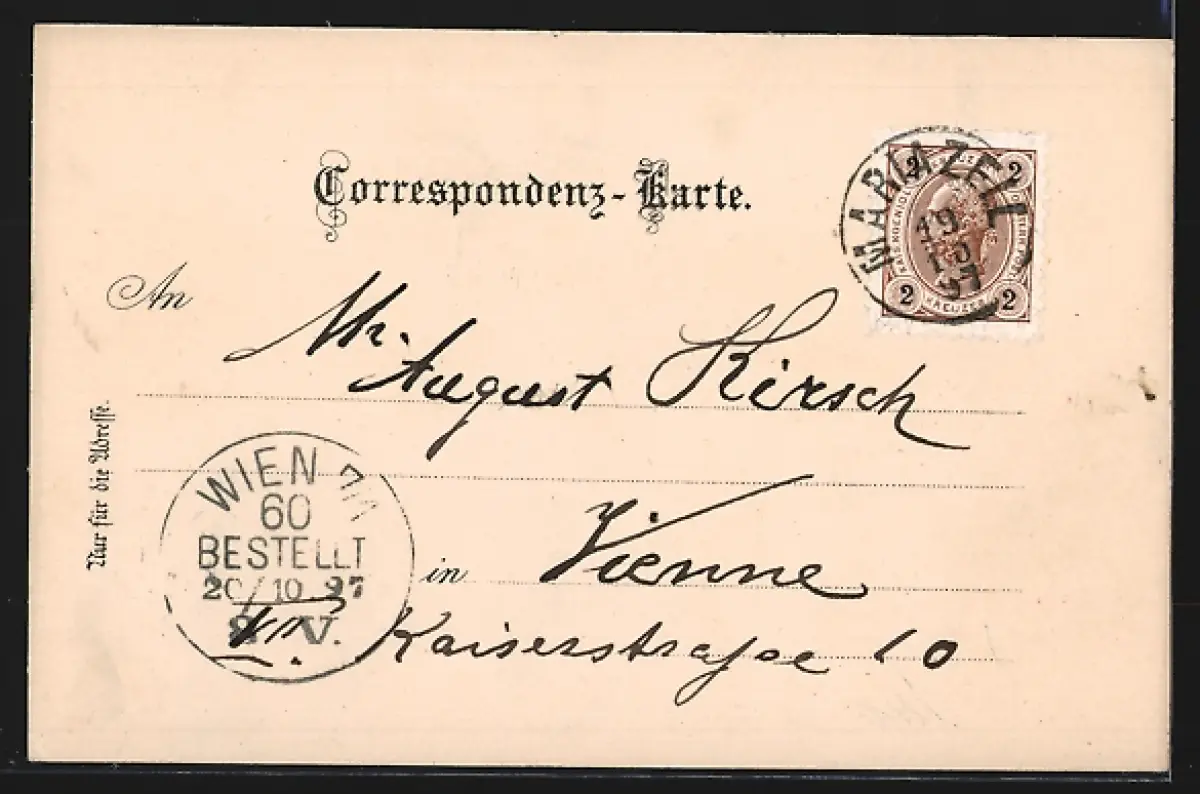 Correspondenz-Karte.
MARIAZELL
19
10
97
2 2
2 KREUZER 2
An
Mr. August Kirsch
Nur für die Adresse.
WIEN 7/1
60
BESTELLT
20/10 97
8 V.
in Vienne
VII. Kaiserstrasse 10